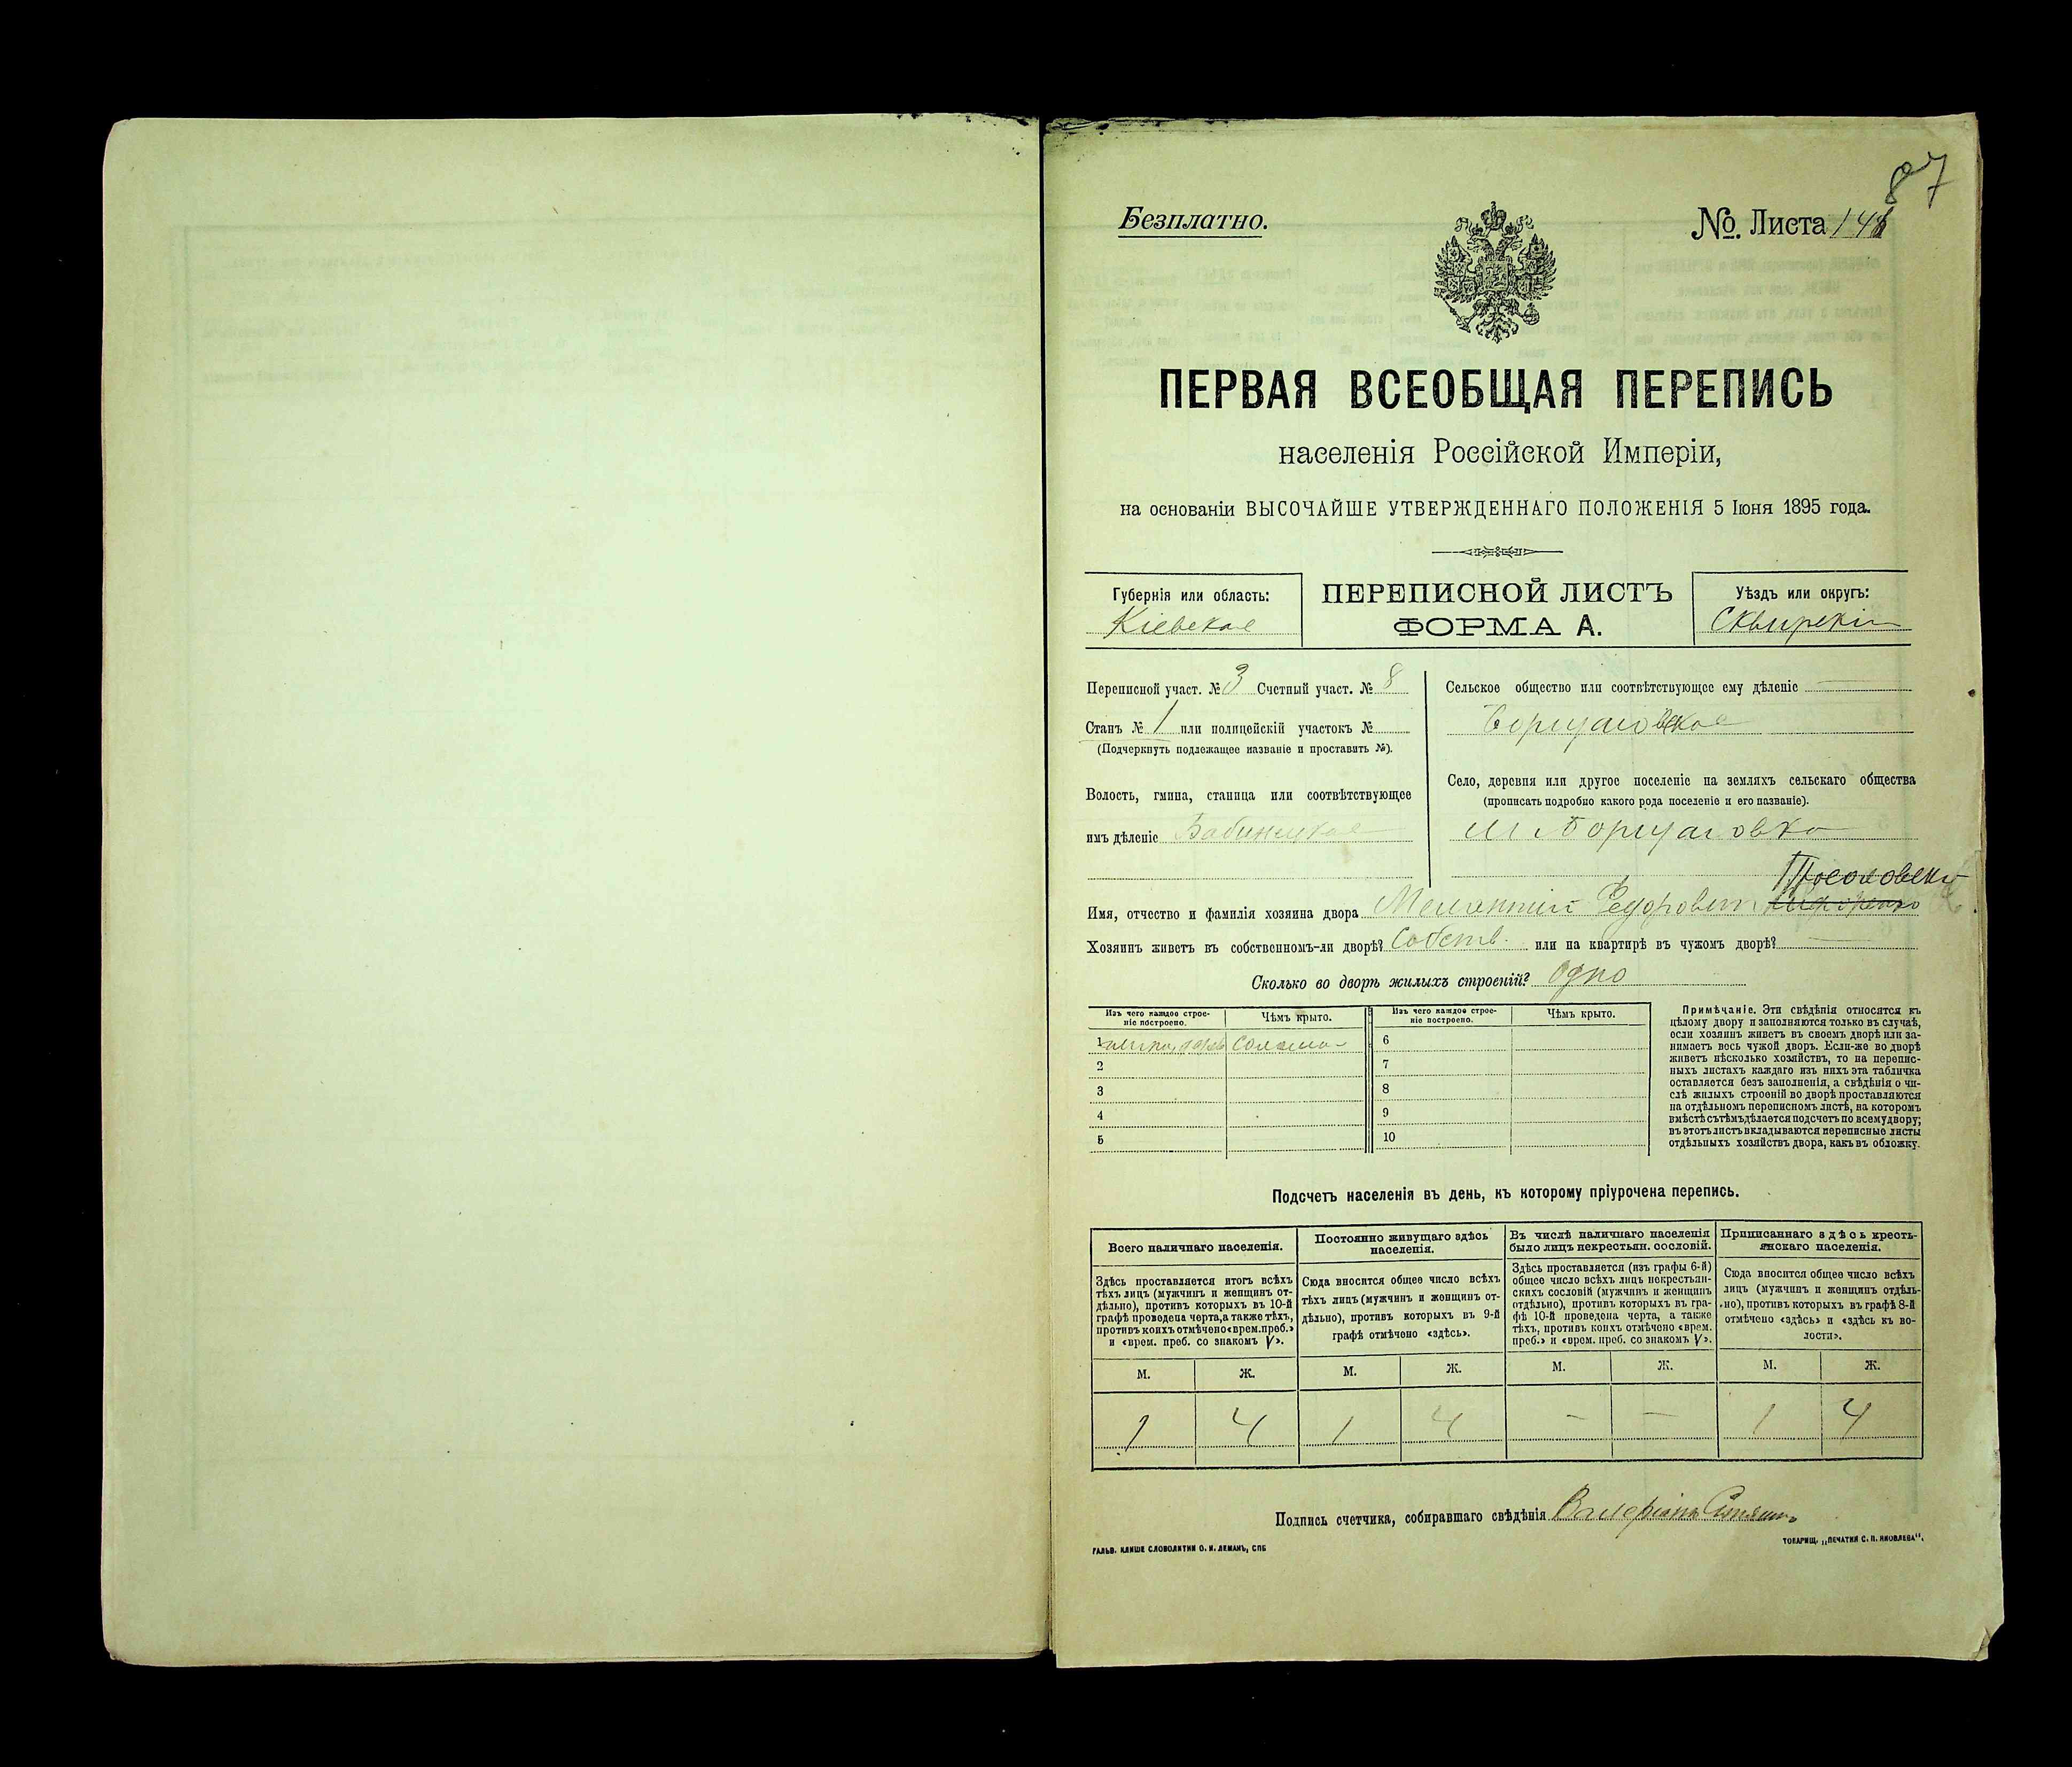 87
Безплатно.
№ Листа 148
ПЕРВАЯ ВСЕОБЩАЯ ПЕРЕПИСЬ
населенія Россійской Имперіи,
на основаніи ВЫСОЧАЙШЕ УТВЕРЖДЕННАГО ПОЛОЖЕНІЯ 5 Іюня 1895 года.
Губернія или область:
Кіевская
ПЕРЕПИСНОЙ ЛИСТЪ
ФОРМА А.
Уѣздъ или округъ:
Сквирскій
Переписной участ. № 3 Счетный участ. № 8
Станъ № 1 или полицейскій участокъ №
(Подчеркнуть подлежащее названіе и проставить №).
Волость, гмина, станица или соотвѣтствующее
имъ дѣленіе
Сельское общество или соотвѣтствующее ему дѣленіе
Борщаговское
Село, деревня или другое поселеніе на земляхъ сельскаго общества
(прописать подробно какого рода поселеніе и его названіе).
м Борщаговка
Имя, отчество и фамилія хозяина двора Мелантій Федоровъ
Хозяинъ живетъ въ собственномъ-ли дворѣ? Собств. или на квартирѣ въ чужомъ дворѣ?
Сколько во дворѣ жилыхъ строеній? Одно
Изъ чего каждое строе-
ніе построено.
Чѣмъ крыто.
Изъ чего каждое строе-
ніе построено.
Чѣмъ крыто.
1 солома 6
2 7
3 8
4 9
5 10
Примѣчаніе. Эти свѣдѣнія относятся къ
цѣлому двору и заполняются только въ случаѣ,
если хозяинъ живетъ въ своемъ дворѣ или за-
нимаетъ весь чужой дворъ. Если-же во дворѣ
живетъ нѣсколько хозяйствъ, то на перепис-
ныхъ листахъ каждаго изъ нихъ эта табличка
оставляется безъ заполненія, а свѣдѣнія о чи-
слѣ жилыхъ строеній во дворѣ проставляются
на отдѣльномъ переписномъ листѣ, на которомъ
вмѣстѣ съ тѣмъ дѣлается подсчетъ по всему двору;
въ этотъ листъ вкладываются переписные листы
отдѣльныхъ хозяйствъ двора, какъ въ обложку.
Подсчетъ населенія въ день, къ которому пріурочена перепись.
Всего наличнаго населенія.
Здѣсь проставляется итогъ всѣхъ
тѣхъ лицъ (мужчинъ и женщинъ от-
дѣльно), противъ которыхъ въ 10-й
графѣ проведена черта, а также тѣхъ,
противъ коихъ отмѣчено «врем. преб.»
и «врем. преб. со знакомъ V».
Постоянно живущаго здѣсь
населенія.
Сюда вносится общее число всѣхъ
тѣхъ лицъ (мужчинъ и женщинъ от-
дѣльно), противъ которыхъ въ 9-й
графѣ отмѣчено «здѣсь».
Въ числѣ наличнаго населенія
было лицъ некрестьян. сословій.
Здѣсь проставляется (изъ графы 6-й)
общее число всѣхъ лицъ некрестьян-
скихъ сословій (мужчинъ и женщинъ
отдѣльно), противъ которыхъ въ гра-
фѣ 10-й проведена черта, а также
тѣхъ, противъ коихъ отмѣчено «врем.
преб.» и «врем. преб. со знакомъ V».
Приписаннаго здѣсь кресть-
янскаго населенія.
Сюда вносится общее число всѣхъ
лицъ (мужчинъ и женщинъ отдѣль-
но), противъ которыхъ въ графѣ 8-й
отмѣчено «здѣсь» и «здѣсь къ во-
лости».
М. Ж. М. Ж. М. Ж. М. Ж.
1 4 1 4 — — 1 4
Подпись счетчика, собиравшаго свѣдѣнія Валеріанъ
ГАЛЬВ. КЛИШЕ СЛОВОЛИТНИ О. И. ЛЕМАНЪ, СПБ
ТОВАРИЩ. „ПЕЧАТНЯ С. П. ЯКОВЛЕВА“.